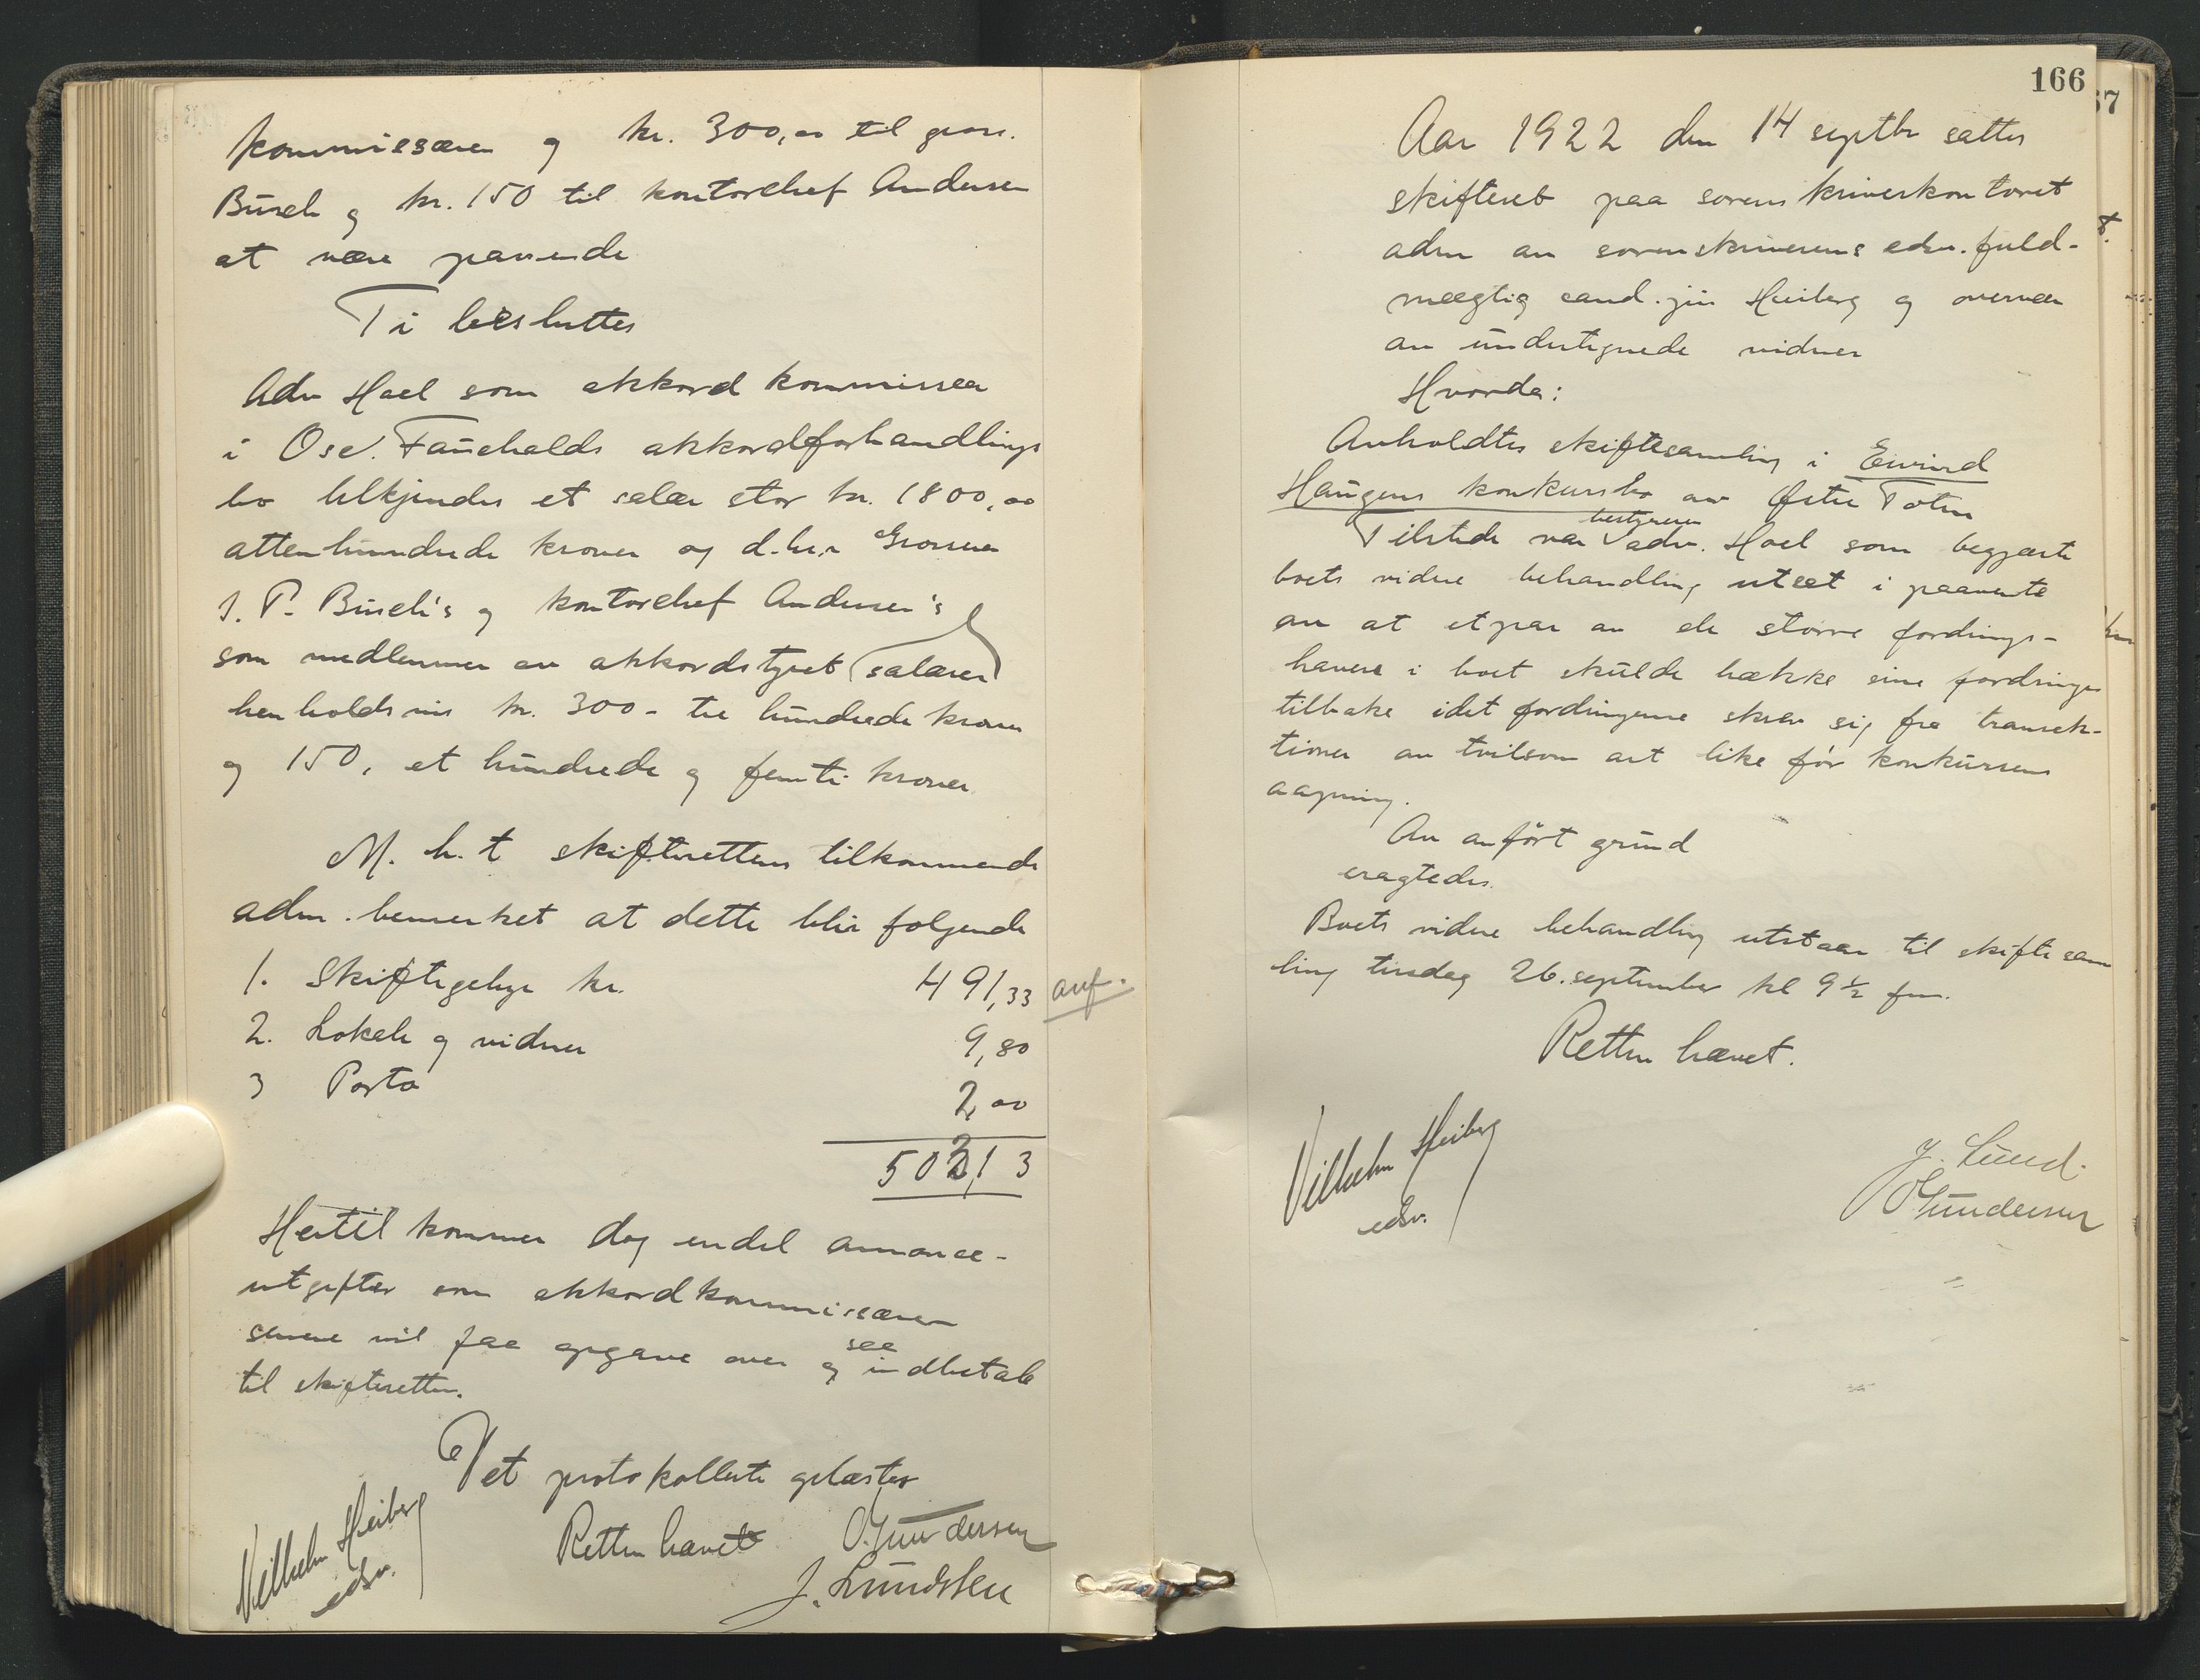 kommissæren og kr. 300,00 til gross.
Busch og kr. 150 til kontorchef Andersen
at være passende
Ti besluttes
Adv Hoel som akkordkommissær
i Osc. Fauchalds akkordforhandlings
bo tilkjendes et salær stor kr. 1800,00
attenhundrede kroner og d.hr.r Grosserer
J. P. Busch's og kontorchef Andersen's
som medlemmer av akkordstyret salærer
henholdsvis kr. 300 - tre hundrede kroner
og 150, et hundrede og femti kroner
M. h. t skifterettens tilkommende
adm. bemerket at dette blir følgende
1. Skiftegebyr kr. 491,33 anf.
2. Lokale og vidner 9,80
3 Porto 2,00
503,13
Hertil kommer dog endel annonce-
utgifter som akkordkommissæren
senere vil faa opgave over og saa indbetale
til skifteretten.
Det protokollerte oplæstes
Retten hævet O. Gundersen
Vilhelm Heiberg
edsv.
J. Lundsten
166
67
Aar 1922 den 14 septbr sattes
skifteret paa sorenskriverkontoret
adm av sorenskriverens edsv. fuld-
mægtig cand. jur Heiberg og overvær
av undertegnede vidner
Hvorda:
Anholdtes skiftesamling i Eivind
Haugens konkursbo av Østre Toten
Tilstede var bestyreren adv. Hoel som begjærte
boets videre behandling utsat i paavente
av at et par av de større fordrings-
havere i boet skulde trække sine fordringer
tilbake idet fordringerne skrev sig fra transak-
tioner av tvilsom art like før konkursens
aapning.
Av anført grund
eragtedes.
Boets videre behandling utstaar til skiftesam
ling tirsdag 26. september kl 9 ½ fm.
Retten hævet.
Vilhelm Heiberg
edsv.
J. Lund.
O Gundersen